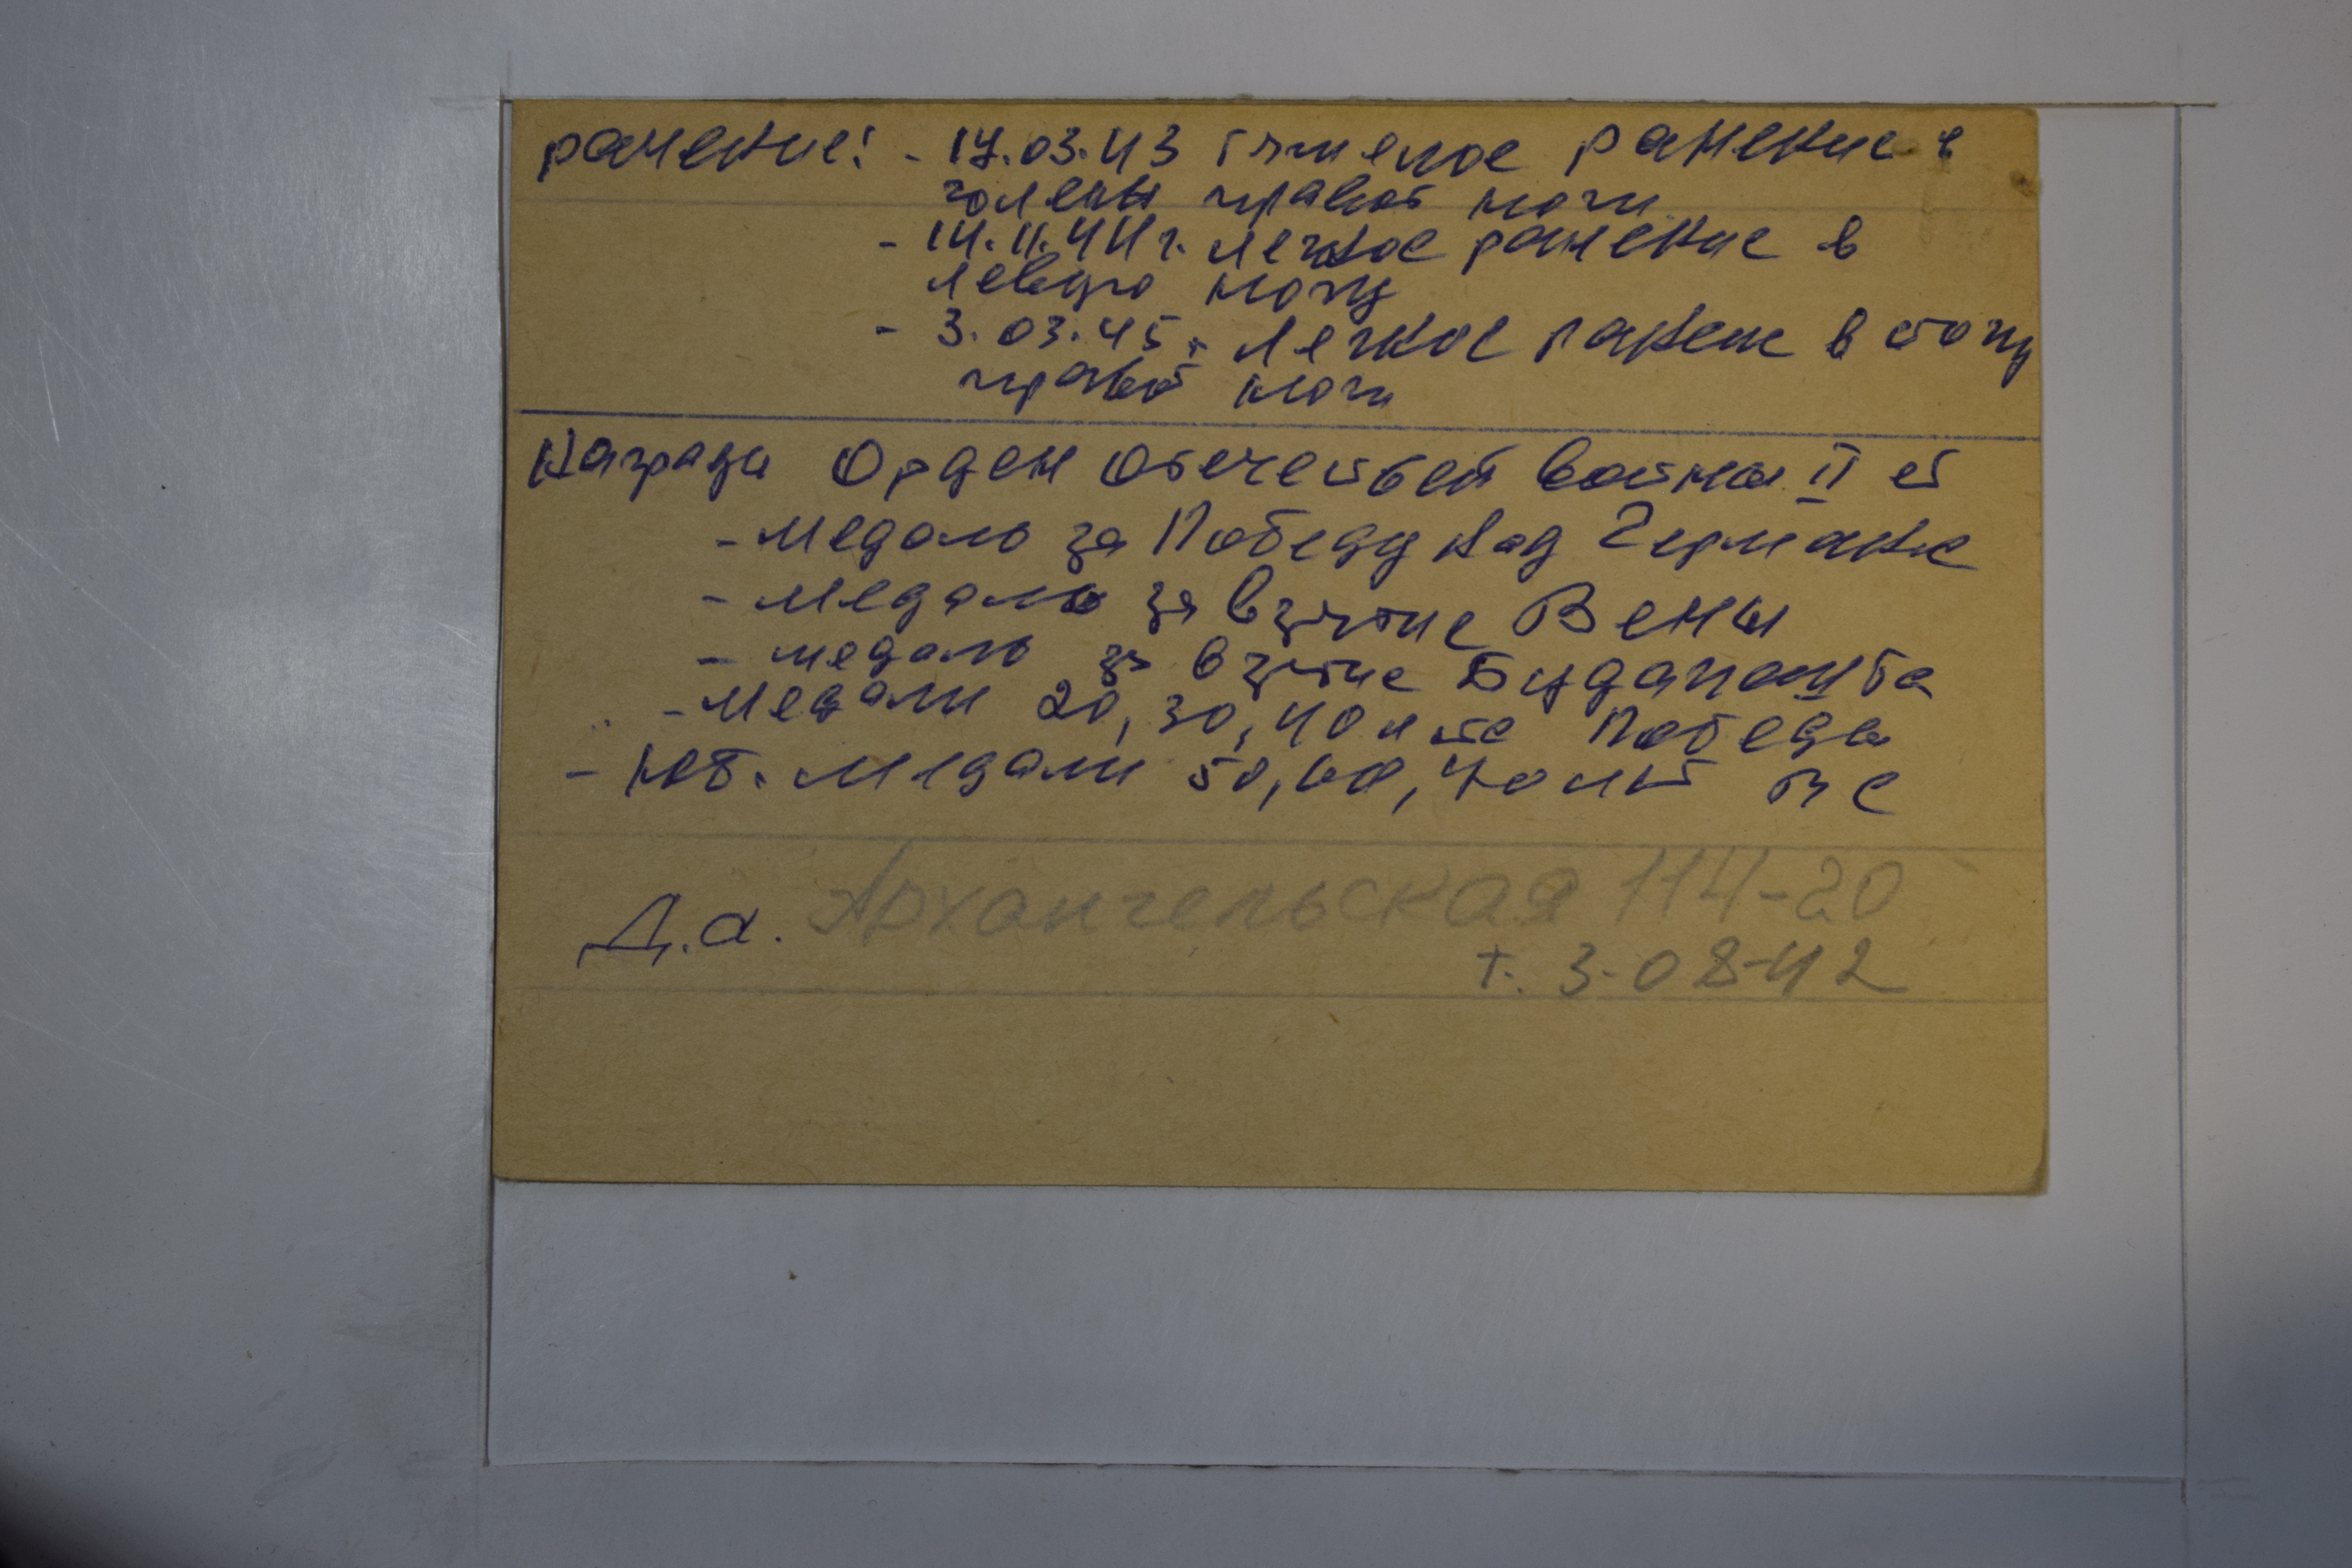 ранение: - 17.03.43 тяжелое ранение в
голень правой ноги
- 14.11.44 г. легкое ранение в
левую ногу
- 3.03.45 г. легкое ранение в стопу
правой ноги
Награды Орден Отечествен войны II ст
- Медаль за Победу над Германие
- Медаль за взятие Вены
- медаль за взятие Будапешта
- Медали 20, 30, 40 лет Победы
- Юб. медали 50, 60, 70 лет ВС
Д.а. Архангельская 114-20
т. 3-08-42